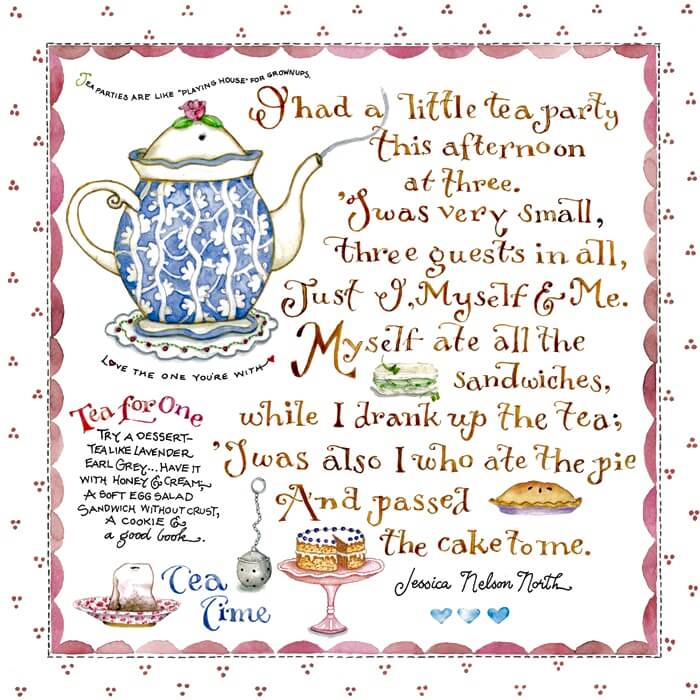 Tea parties are like "playing house" for grownups.
I had a little tea party
this afternoon
at three.
'Twas very small,
three guests in all,
Just I, Myself & Me.
Myself ate all the
sandwiches,
while I drank up the tea;
'Twas also I who ate the pie
And passed
the cake to me.
Jessica Nelson North
Love the one you're with
Tea for One
Try a dessert-
tea like Lavender
Earl Grey... have it
with honey & cream,
a soft egg salad
sandwich without crust,
a cookie &
a good book.
Tea
Time